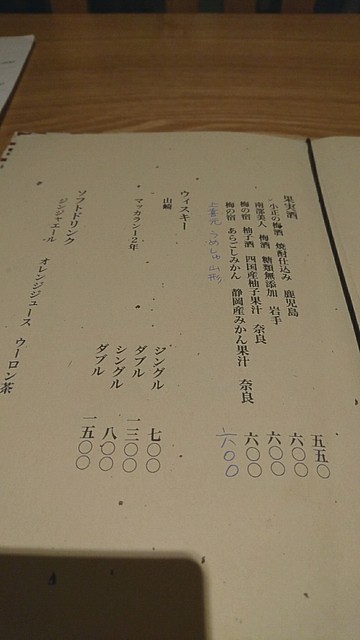 果実酒
小正の梅酒 焼酎仕込み 鹿児島 五五〇
南部美人 梅酒 糖類無添加 岩手 六〇〇
梅の宿 柚子酒 四国産柚子果汁 奈良 六〇〇
梅の宿 あらごしみかん 静岡産みかん果汁 奈良 六〇〇
上喜元 うめしゅ 山形 六〇〇
ウィスキー
山崎 シングル 七〇〇
ダブル 一三〇〇
マッカラン12年 シングル 八〇〇
ダブル 一五〇〇
ソフトドリンク
ジンジャエール オレンジジュース ウーロン茶